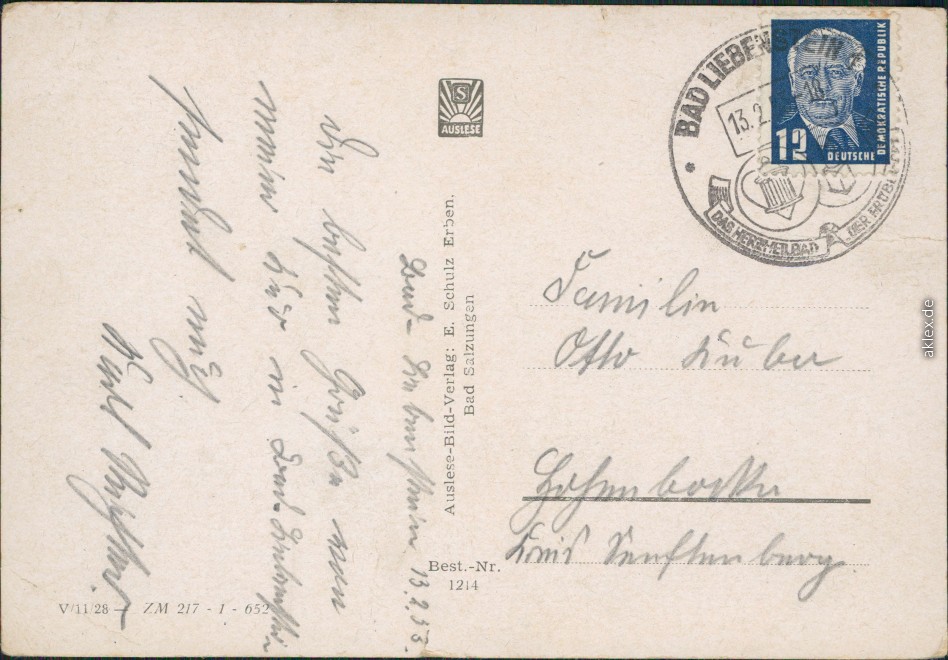 Bad-Liebenstein 13.2.53.
Die besten Grüße von
meiner Kur in Bad-Liebenstein
sendet
Karl
AUSLESE
Auslese-Bild-Verlag: E. Schulz Erben.
Bad Salzungen
Best.-Nr.
1214
V/11/28 — ZM 217 - 1 - 652
BAD LIEBENSTEIN
13.2.
DAS HERZHEILBAD
DER
12
DEUTSCHE
DEMOKRATISCHE REPUBLIK
Familie
Otto Kuber
Hohenbocka
Kreis Senftenberg
aklex.de